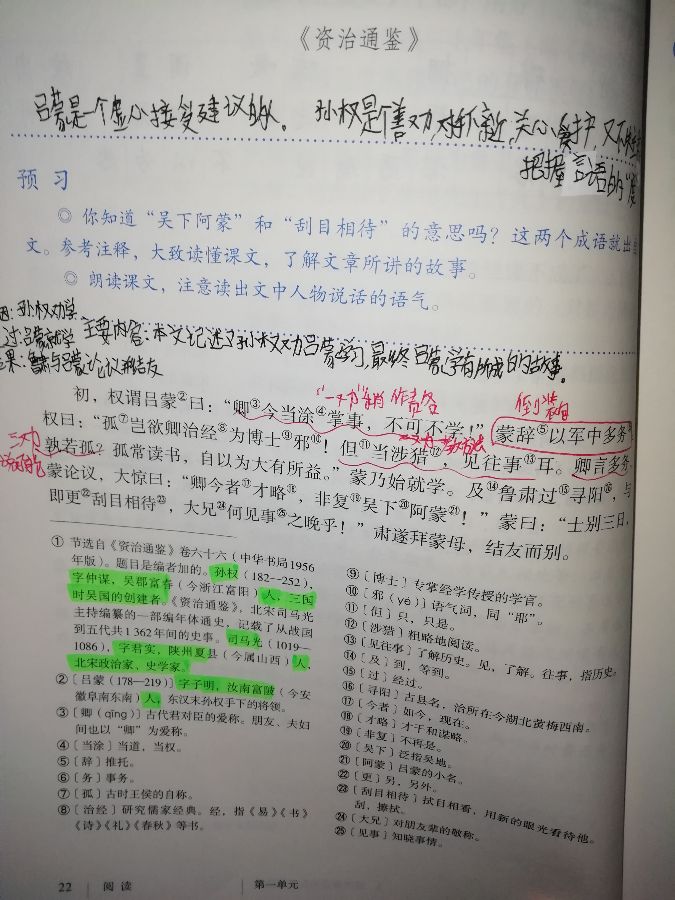 《资治通鉴》
吕蒙是一个虚心接受建议的人。 孙权是个善劝,对下关心爱护,又不失
把握言语的“度
预 习
◎ 你知道“吴下阿蒙”和“刮目相待”的意思吗?这两个成语就出自
文。参考注释,大致读懂课文,了解文章所讲的故事。
◎ 朗读课文,注意读出文中人物说话的语气。
因:孙权劝学
过:吕蒙就学
果:鲁肃与吕蒙论议,并结友
主要内容:本文记述了孙权劝吕蒙学习,最终吕蒙学有所成的故事。
“一劝”
倒装句
初,权谓吕蒙②曰:“卿③今当涂④掌事,不可不学!”蒙辞⑤以军中多务
权曰:“孤⑦岂欲卿治经⑧为博士⑨邪⑩!但⑪当涉猎⑫,见往事⑬耳。卿言多务,
三劝
孰若孤?孤常读书,自以为大有所益。”蒙乃始就学。及⑭鲁肃过⑮寻阳⑯,与
蒙论议,大惊曰:“卿今者⑰才略⑱,非复⑲吴下⑳阿蒙㉑!”蒙曰:“士别三日,
即更㉒刮目相待㉓,大兄㉔何见事㉕之晚乎!”肃遂拜蒙母,结友而别。
① 节选自《资治通鉴》卷六十六(中华书局1956
年版)。题目是编者加的。孙权(182—252),
字仲谋,吴郡富春(今浙江富阳)人,三国
时吴国的创建者。《资治通鉴》,北宋司马光
主持编纂的一部编年体通史,记载了从战国
到五代共1 362年间的史事。司马光(1019—
1086),字君实,陕州夏县(今属山西)人,
北宋政治家、史学家。
② 〔吕蒙(178—219)〕字子明,汝南富陂(今安
徽阜南东南)人,东汉末孙权手下的将领。
③〔卿(qīng)〕古代君对臣的爱称。朋友、夫妇
间也以“卿”为爱称。
④〔当涂〕当道,当权。
⑤〔辞〕推托。
⑥〔务〕事务。
⑦〔孤〕古时王侯的自称。
⑧〔治经〕研究儒家经典。经,指《易》《书》
《诗》《礼》《春秋》等书。
⑨〔博士〕专掌经学传授的学官。
⑩〔邪(yé)〕语气词,同“耶”。
⑪〔但〕只,只是。
⑫〔涉猎〕粗略地阅读。
⑬〔见往事〕了解历史。见,了解。往事,指历史。
⑭〔及〕到,等到。
⑮〔过〕经过。
⑯〔寻阳〕古县名,治所在今湖北黄梅西南。
⑰〔今者〕如今,现在。
⑱〔才略〕才干和谋略。
⑲〔非复〕不再是。
⑳〔吴下〕泛指吴地。
㉑〔阿蒙〕吕蒙的小名。
㉒〔更〕另,另外。
㉓〔刮目相待〕拭目相看,用新的眼光看待他。
刮,擦拭。
㉔〔大兄〕对朋友辈的敬称。
㉕〔见事〕知晓事情。
22 阅 读 第一单元